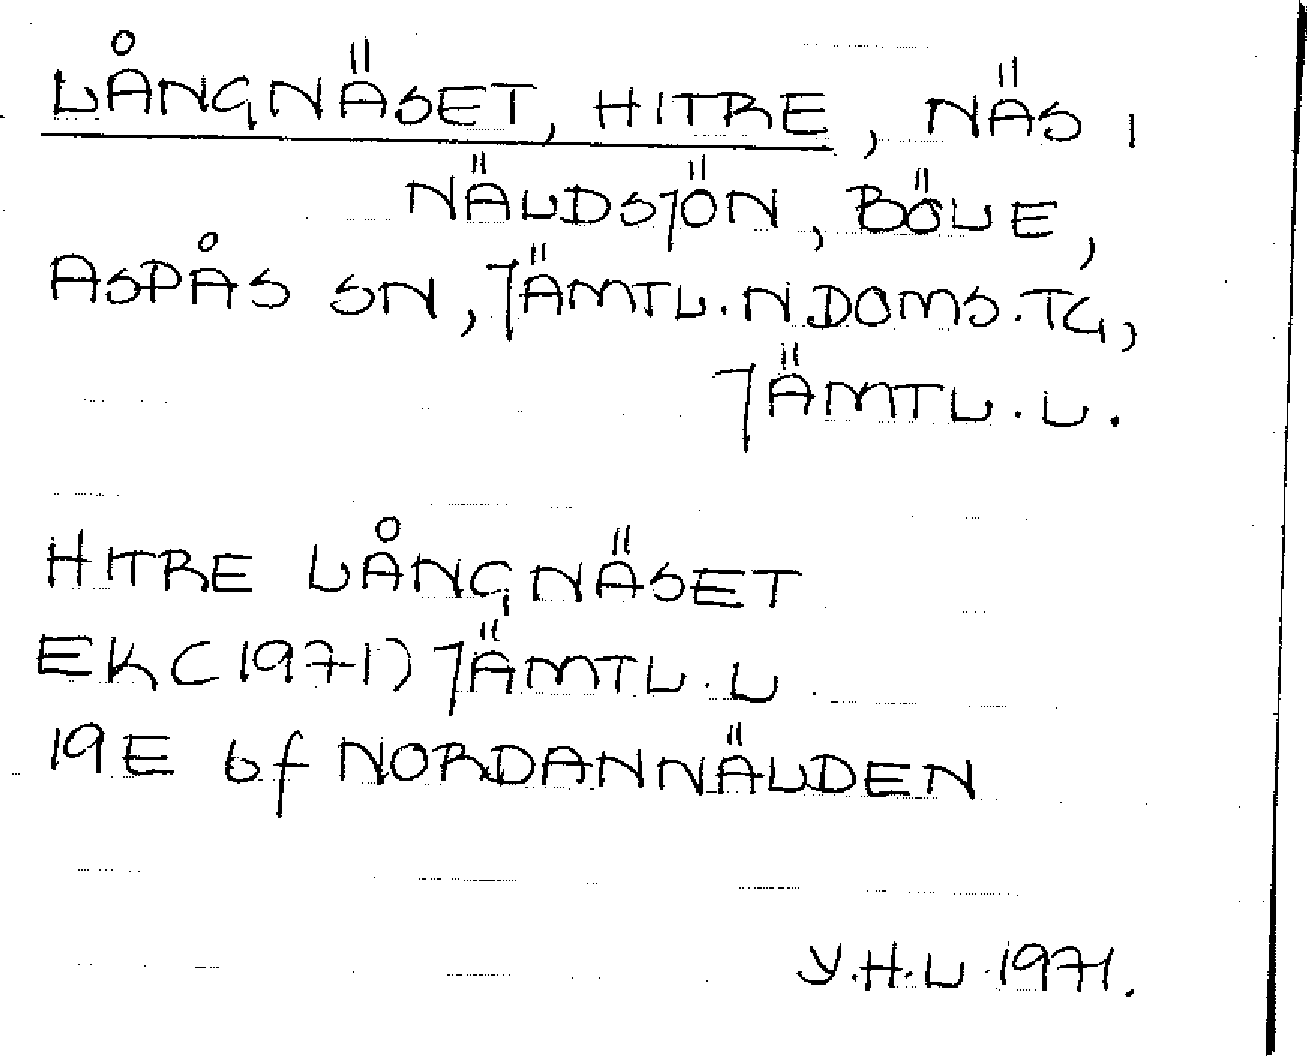 LÅNGNÄSET, HITRE, NÄS I
NÄLDSJÖN, BÖLE,
ASPÅS SN, JÄMTL. N. DOMS. TG,
JÄMTL. L.
HITRE LÅNGNÄSET
EK (1971) JÄMTL. L
19E 6f NORDANNÄLDEN
Y.H.L. 1971.